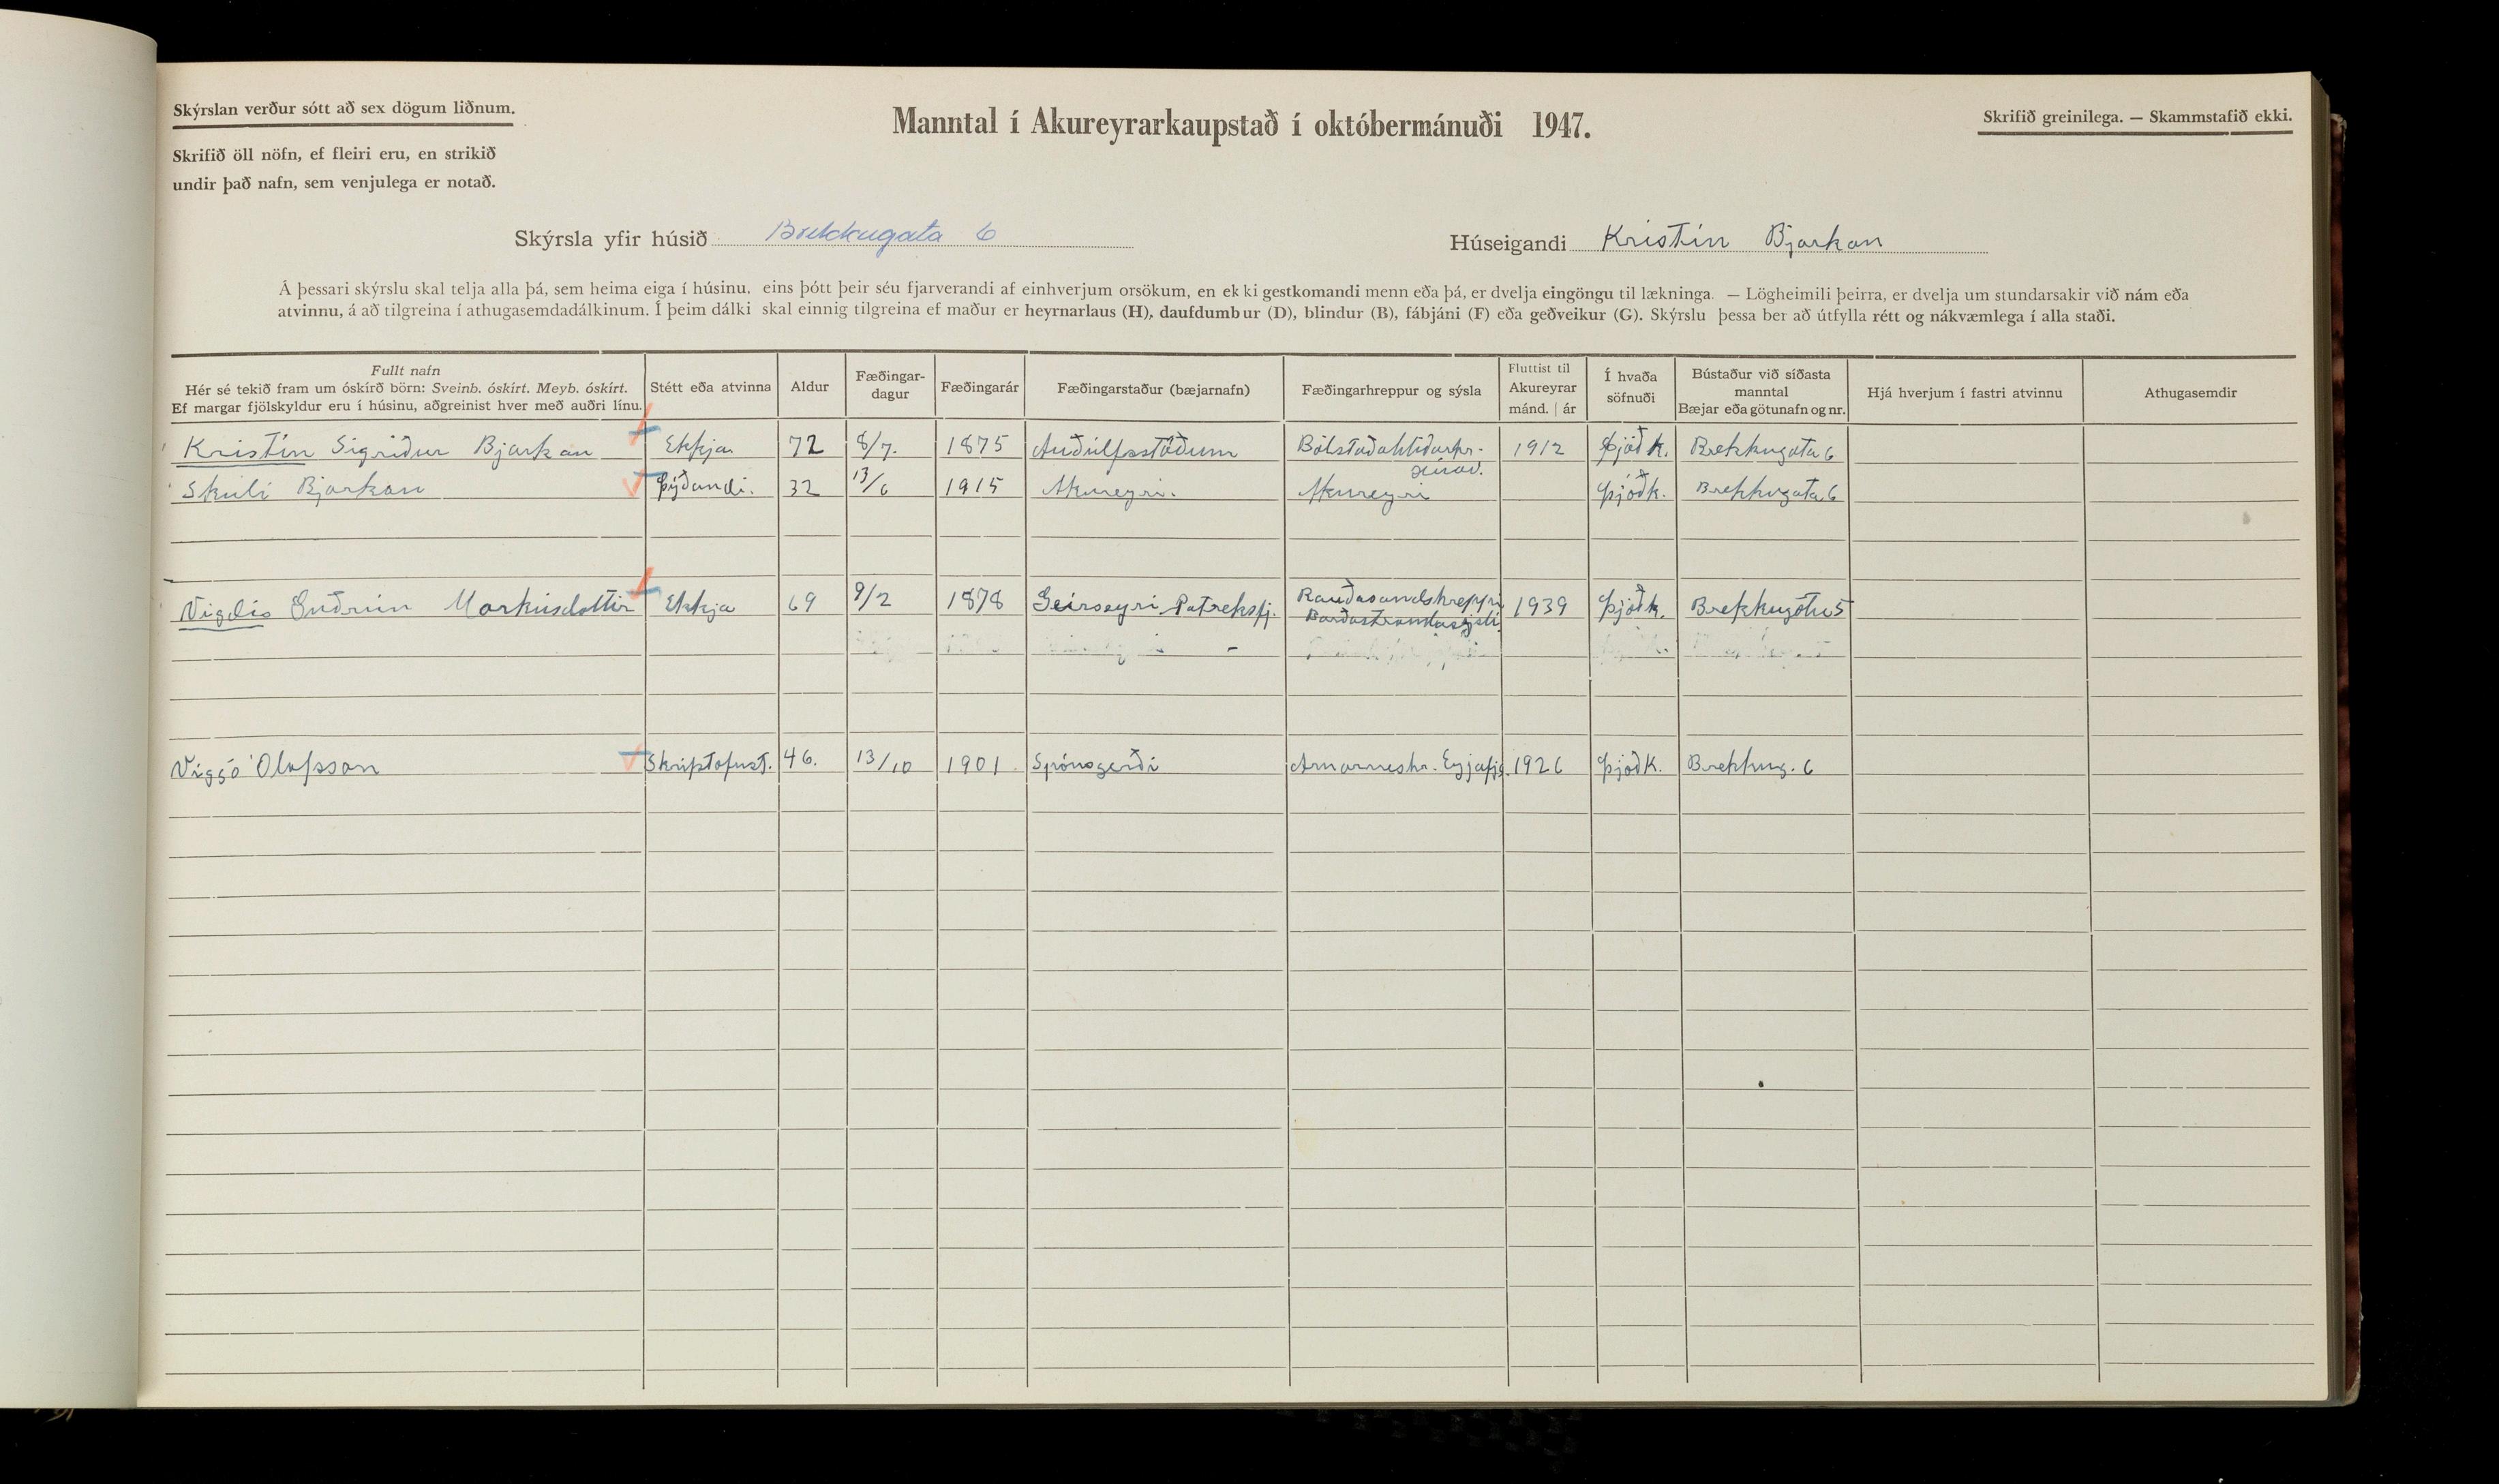 Skýrslan verður sótt að sex dögum liðnum.
Manntal í Akureyrarkaupstað í októbermánuði 1947.
Skrifið greinilega. — Skammstafið ekki.
Skrifið öll nöfn, ef fleiri eru, en strikið
undir það nafn, sem venjulega er notað.
Skýrsla yfir húsið Brekkugata 6
Húseigandi Kristín Bjarkan
Á þessari skýrslu skal telja alla þá, sem heima eiga í húsinu, eins þótt þeir séu fjarverandi af einhverjum orsökum, en ekki gestkomandi menn eða þá, er dvelja eingöngu til lækninga. — Lögheimili þeirra, er dvelja um stundarsakir við nám eða
atvinnu, á að tilgreina í athugasemdadálkinum. Í þeim dálki skal einnig tilgreina ef maður er heyrnarlaus (H), daufdumbur (D), blindur (B), fábjáni (F) eða geðveikur (G). Skýrslu þessa ber að útfylla rétt og nákvæmlega í alla staði.
Fullt nafn
Hér sé tekið fram um óskírð börn: Sveinb. óskírt. Meyb. óskírt.
Ef margar fjölskyldur eru í húsinu, aðgreinist hver með auðri línu.
Stétt eða atvinna
Aldur
Fæðingar-
dagur
Fæðingarár
Fæðingarstaður (bæjarnafn)
Fæðingarhreppur og sýsla
Fluttist til
Akureyrar
mánd. | ár
Í hvaða
söfnuði
Bústaður við síðasta
manntal
Bæjar eða götunafn og nr.
Hjá hverjum í fastri atvinnu
Athugasemdir
Kristín Sigríður Bjarkan Ekkja 72 8/7. 1875 Auðúlfsstöðum Bólstaðahlíðarhr. 1912 Þjóðk. Brekkugata 6
Skúli Bjarkan Þýðandi. 32 13/6 1915 Akureyri. Akureyri Þjóðk. Brekkugata 6
Vigdís Guðrún Markúsdottir Ekkja 69 9/2 1878 Geirseyri Patreksfj. Rauðasandshreppi 1939 Þjóðk. Brekkugötu 5
Barðastrandasýslu
Viggó Olafsson Skrifstofust. 46. 13/10 1901 Spónsgerði Arnarneshr. Eyjafj. 1926 Þjóðk. Brekkug. 6